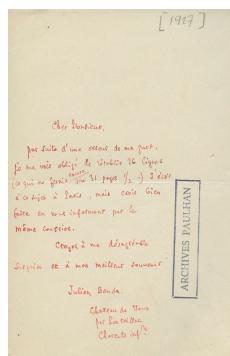 [1927]
Cher Monsieur,
par suite d'une erreur de ma part,
je me vois obligé de rétablir 26 lignes
(ce qui ne ferait encore que 31 pages 1/2 .) J'écris
à ce sujet à Paris, mais crois bien
faire en vous informant par le
même courrier.
Croyez à ma désagréable
surprise et à mon meilleur souvenir
Julien Benda.
Chateau de
par
Charente infre
ARCHIVES PAULHAN